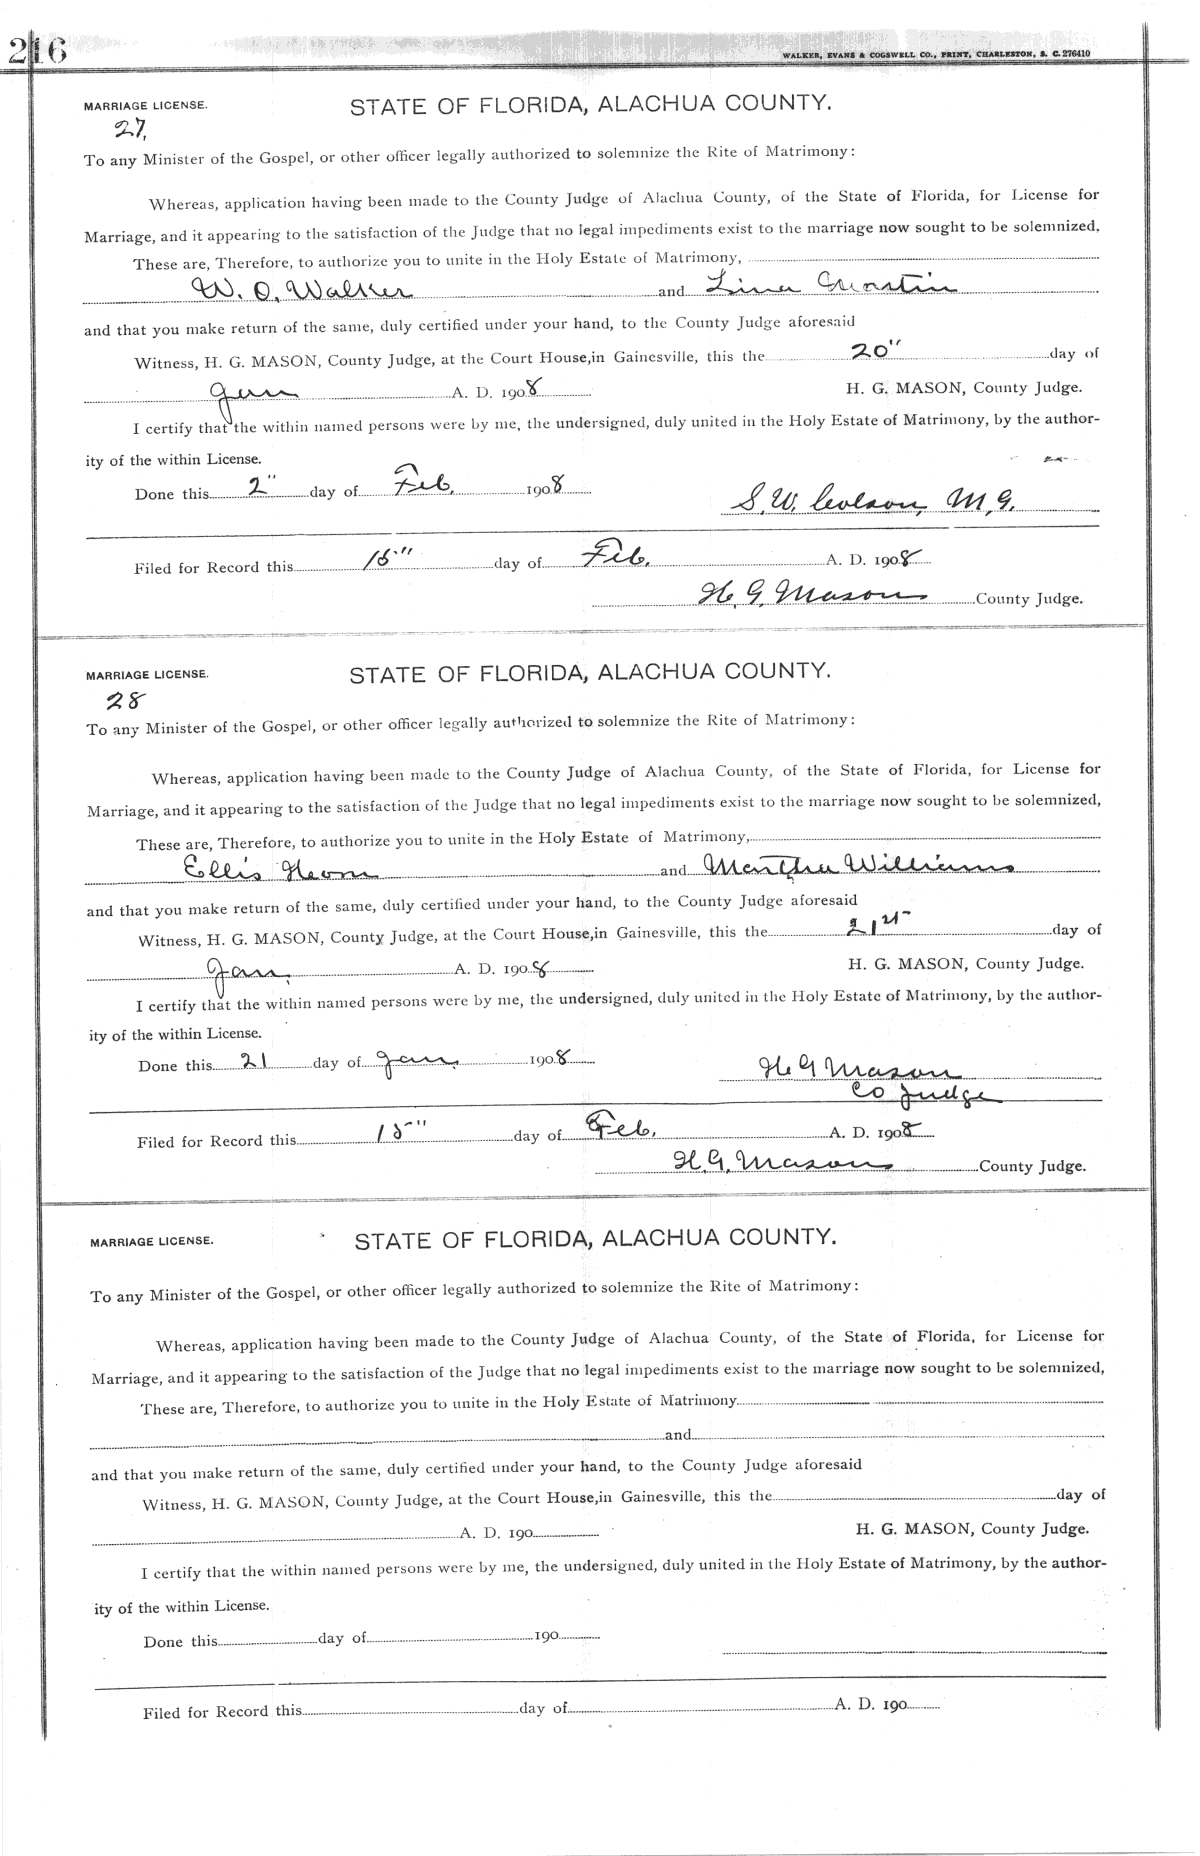 216
WALKER, EVANS & COGSWELL CO., PRINT, CHARLESTON, S. C. 276410
MARRIAGE LICENSE. STATE OF FLORIDA, ALACHUA COUNTY.
27,
To any Minister of the Gospel, or other officer legally authorized to solemnize the Rite of Matrimony:
Whereas, application having been made to the County Judge of Alachua County, of the State of Florida, for License for
Marriage, and it appearing to the satisfaction of the Judge that no legal impediments exist to the marriage now sought to be solemnized,
These are, Therefore, to authorize you to unite in the Holy Estate of Matrimony,
W. O. Walker and Lina
and that you make return of the same, duly certified under your hand, to the County Judge aforesaid
Witness, H. G. MASON, County Judge, at the Court House, in Gainesville, this the 20" day of
Jan A. D. 1908 H. G. MASON, County Judge.
I certify that the within named persons were by me, the undersigned, duly united in the Holy Estate of Matrimony, by the author-
ity of the within License.
Done this 2" day of Feb. 1908
S. W. Colson, M. G.
Filed for Record this 15" day of Feb. A. D. 1908
H. G. Mason County Judge.
MARRIAGE LICENSE. STATE OF FLORIDA, ALACHUA COUNTY.
28
To any Minister of the Gospel, or other officer legally authorized to solemnize the Rite of Matrimony:
Whereas, application having been made to the County Judge of Alachua County, of the State of Florida, for License for
Marriage, and it appearing to the satisfaction of the Judge that no legal impediments exist to the marriage now sought to be solemnized,
These are, Therefore, to authorize you to unite in the Holy Estate of Matrimony,
Ellis and Martha Williams
and that you make return of the same, duly certified under your hand, to the County Judge aforesaid
Witness, H. G. MASON, County Judge, at the Court House, in Gainesville, this the 21st day of
Jan, A. D. 1908 H. G. MASON, County Judge.
I certify that the within named persons were by me, the undersigned, duly united in the Holy Estate of Matrimony, by the author-
ity of the within License.
Done this 21 day of Jan. 1908 H G Mason
Co Judge
Filed for Record this 15" day of Feb. A. D. 1908
H. G. Mason County Judge.
MARRIAGE LICENSE. STATE OF FLORIDA, ALACHUA COUNTY.
To any Minister of the Gospel, or other officer legally authorized to solemnize the Rite of Matrimony:
Whereas, application having been made to the County Judge of Alachua County, of the State of Florida, for License for
Marriage, and it appearing to the satisfaction of the Judge that no legal impediments exist to the marriage now sought to be solemnized,
These are, Therefore, to authorize you to unite in the Holy Estate of Matrimony
and
and that you make return of the same, duly certified under your hand, to the County Judge aforesaid
Witness, H. G. MASON, County Judge, at the Court House, in Gainesville, this the day of
A. D. 190 H. G. MASON, County Judge.
I certify that the within named persons were by me, the undersigned, duly united in the Holy Estate of Matrimony, by the author-
ity of the within License.
Done this day of 190
Filed for Record this day of A. D. 190